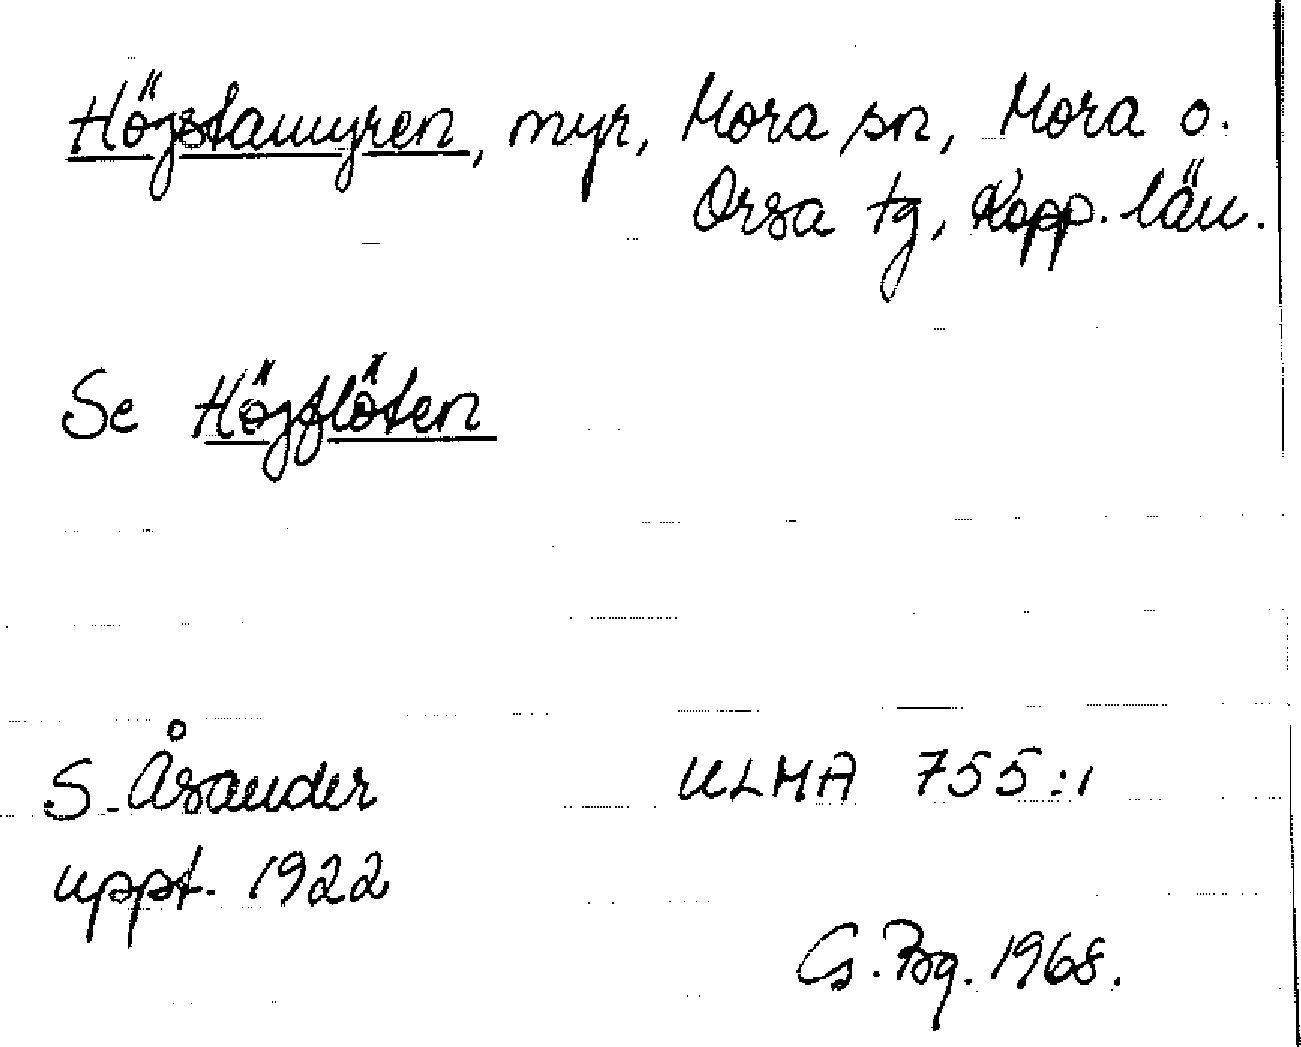 Högstamyren, myr, Mora sn, Mora o.
Orsa tg, Kopp. län.
Se Högflöten
S. Åsander
uppt. 1922
ULMA 755:1
G. Bg. 1968.